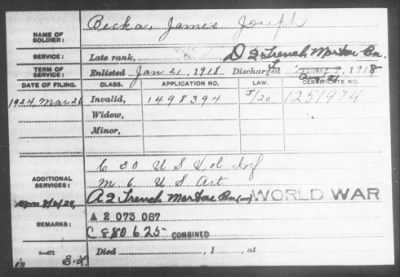 NAME OF SOLDIER: Becka, James Joseph
SERVICE: Late rank, D 2 Trench Mortar Bn.
TERM OF SERVICE: Enlisted Jan 21, 1918 Discharged 1918
DATE OF FILING. CLASS. APPLICATION NO. LAW. CERTIFICATE NO.
1924 Mar 26 Invalid, 1498394 5/20 1251974
Widow,
Minor,
C 30 U S Vol Inf
ADDITIONAL SERVICES: M 6 U S Art
A 2 Trench Mortar Bn WORLD WAR
REMARKS: A 2 073 087
C 880 625 COMBINED
Died , 1 , at